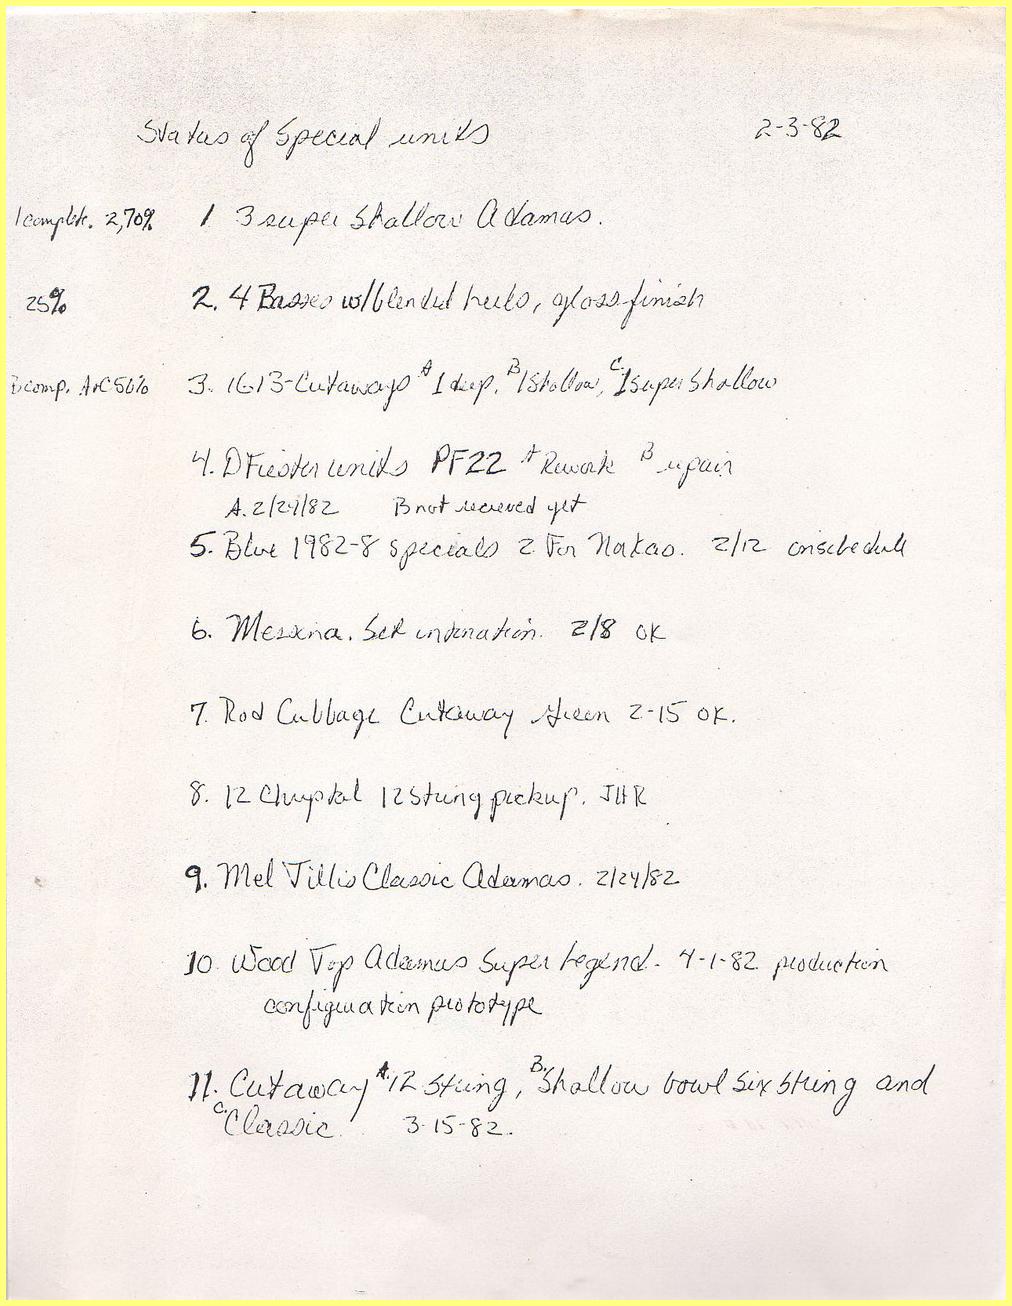 Status of Special units 2-3-82
1 complete. 2,70% 1 3 super Shallow Adamas.
25% 2. 4 Basses w/blended heels, gloss finish
B comp. A+C 50% 3. 1613-Cutaways A 1 deep, B 1 Shallow, C. 1 super Shallow
4. D Fiester units PF22 A Rework B repair
A. 2/24/82 B not recieved yet
5. Blue 1982-8 specials 2 For Nakao. 2/12 on schedule
6. Messina. Set intonation. 2/8 OK
7. Rod Cubbage Cutaway green 2-15 OK.
8. 12 12 String pickup. JHR
9. Mel Tillis Classic Adamas. 2/24/82
10 Wood Top Adamas Super Legend. 4-1-82 production
configuration prototype
11. Cutaway A. 12 String, B. Shallow bowl Six String and
C. Classic. 3-15-82.